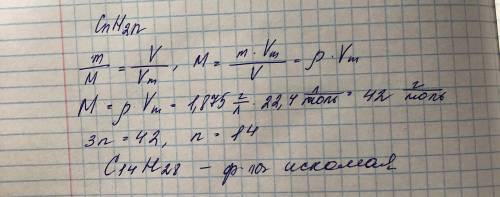 CnH2n
m/M = V/Vm, M = m · Vm/V = ρ · Vm
M = ρ Vm = 1,875 г/л · 22,4 л/моль = 42 г/моль
3n = 42, n = 14
C14H28 – ф-ла искомая